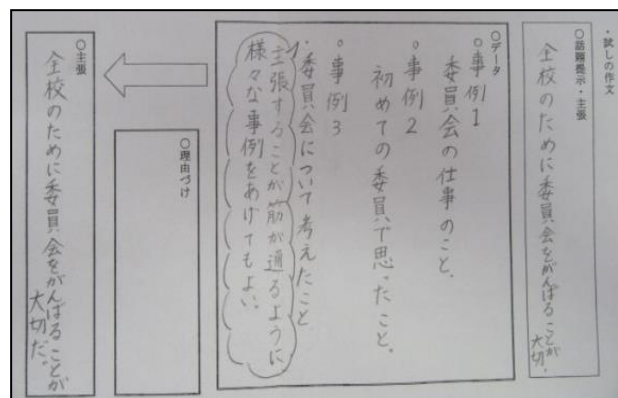 ・試しの作文
○話題提示・主張
全校のために委員会をがんばることが
大切。
○データ
○事例1
委員会の仕事のこと。
○事例2
初めての委員で思ったこと。
○事例3
・委員会について考えたこと
主張することが筋が通るように
様々な事例をあげてもよい。
○理由づけ
○主張
全校のために委員会をがんばることが
大切だ。